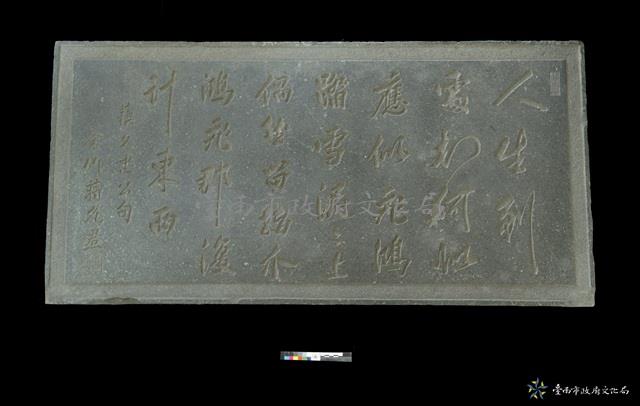 人生到
處知何似
應似飛鴻
踏雪泥々上
偶然留指爪
鴻飛那復
計東西
蘇文忠公句
臺南市政府文化局
臺南市政府文化局